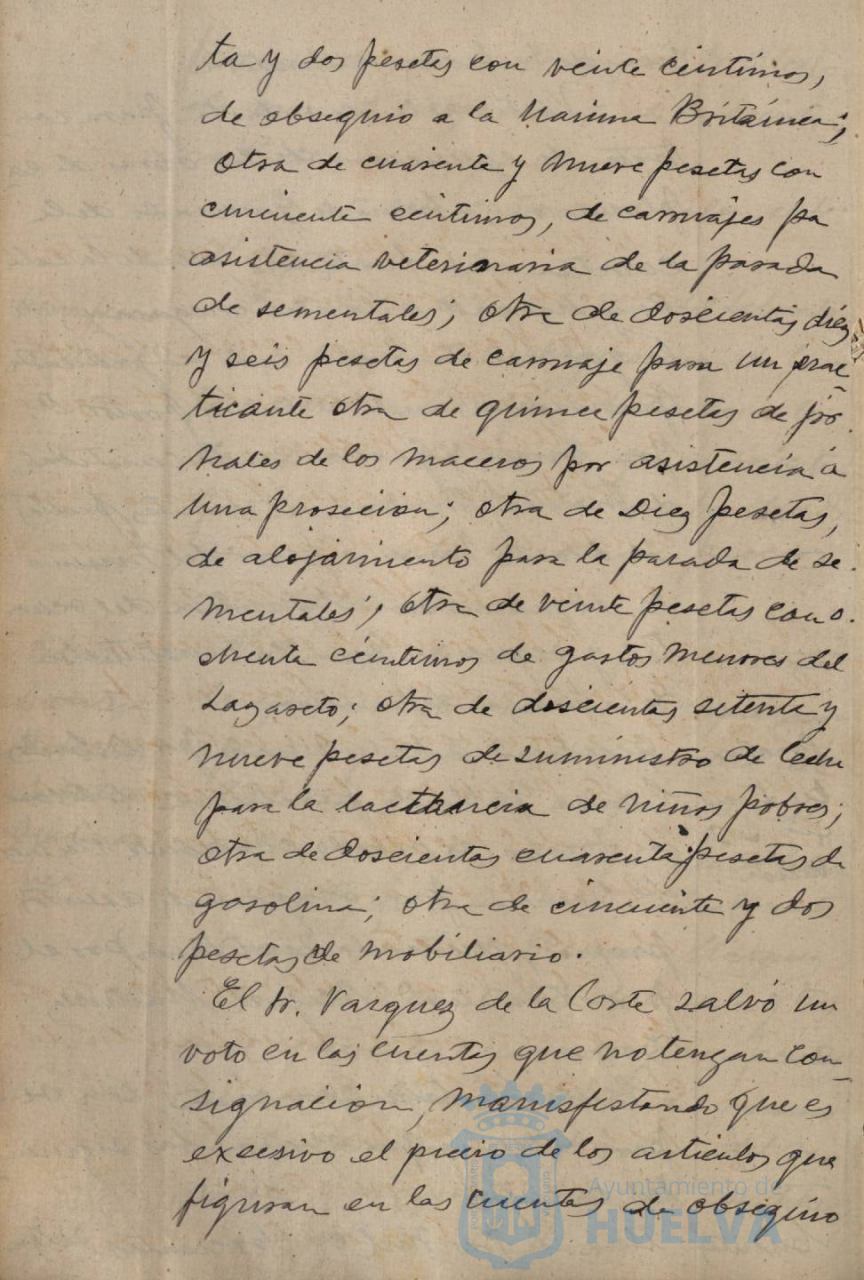 ta y dos pesetas con veinte centimos,
de obsequio a la Marina Británica;
otra de cuarenta y nueve pesetas con
cincuenta centimos, de carruajes pa
asistencia veterinaria de la parada
de sementales; otra de doscientas diez
y seis pesetas de carruaje para un prac-
ticante otra de quince pesetas de jor-
nales de los maceros por asistencia a
una prosecion; otra de Diez pesetas,
de alojamiento para la parada de se-
mentales; otra de veinte pesetas con o-
chenta centimos de gastos menores del
Lazareto; otra de doscientas setenta y
nueve pesetas de suministro de leche
para la lactancia de niños pobres;
otra de doscientas cuarenta pesetas de
gasolina; otra de cincuenta y dos
pesetas de mobiliario.
El Sr. Vazquez de la Corte salvó su
voto en las cuentas que no tengan con-
signacion, manisfestando que es
excesivo el precio de los articulos que
figuran en las cuentas de obsequio
Ayuntamiento de
HUELVA